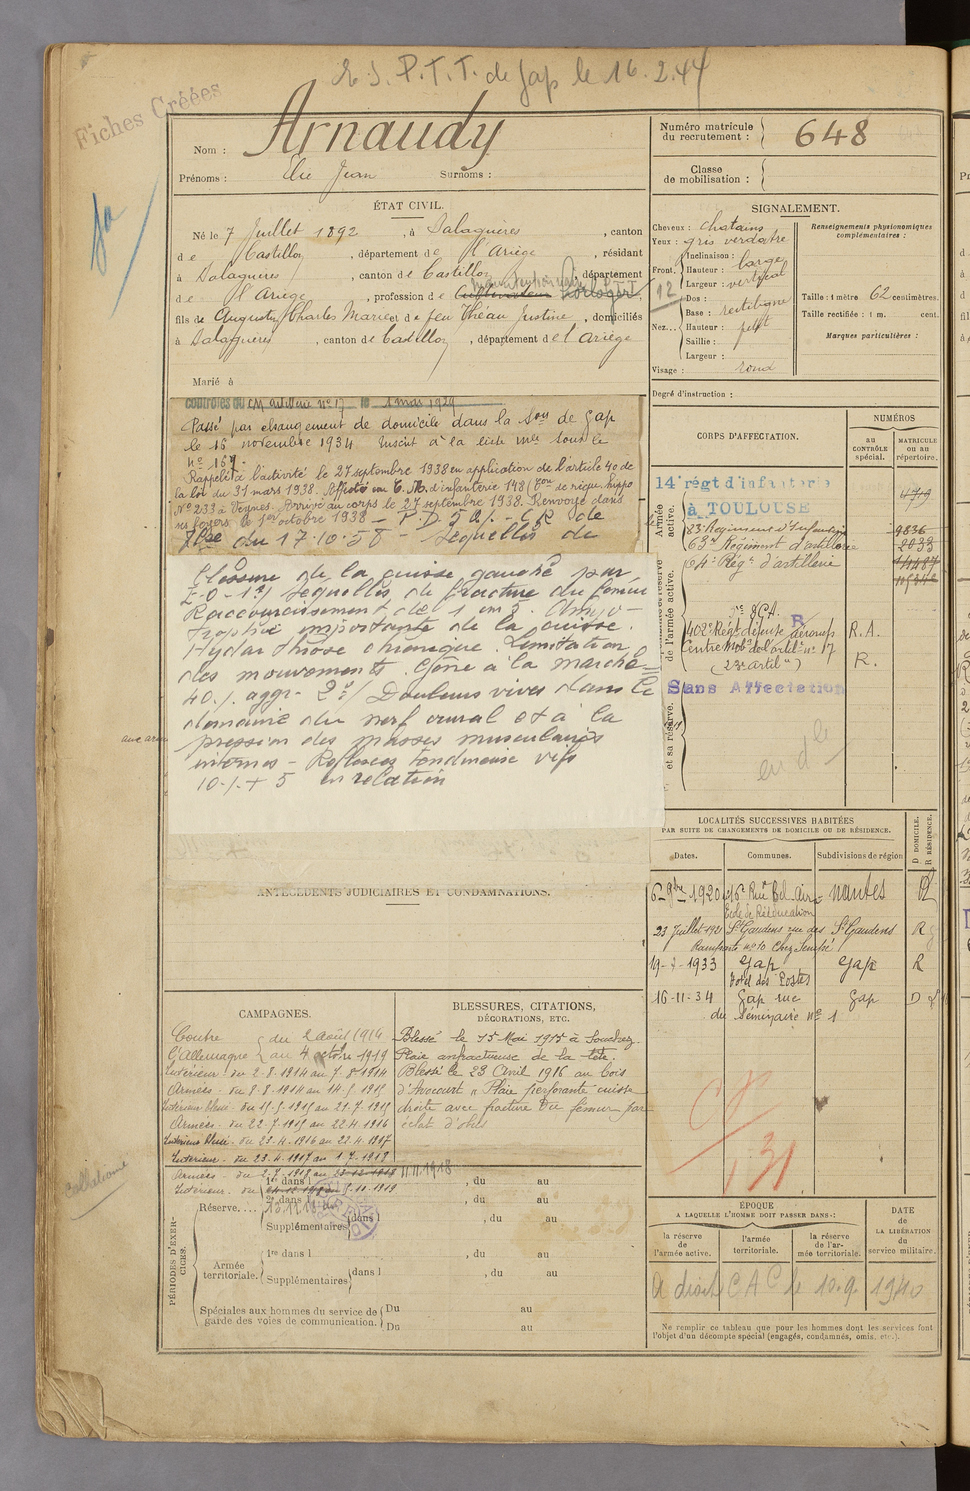 P.T.T. de Gap le 16.2.44
Fiches Créées
Nom : Arnaudy
Prénoms : Elie Jean Surnoms :
Numéro matricule
du recrutement : 648
Classe
de mobilisation :
ÉTAT CIVIL.
Né le 7 Juillet 1892, à Salaguères, canton
de Castillon, département de l'Ariège, résidant
à Salaguères, canton de Castillon, département
de l'Ariège, profession de Cultivateur Horloger P.T.T.
fils de Augustin Charles Marie et de feu Théau Justine, domiciliés
à Salaguères, canton de Castillon, département de l'Ariège
Marié à
SIGNALEMENT.
Cheveux : chatains
Yeux : gris verdâtre
Front. Inclinaison :
Hauteur : large
Largeur : vertical
12
Nez... Dos :
Base : rectiligne
Hauteur : petit
Saillie :
Largeur :
Visage : rond
Renseignements physionomiques
complémentaires :
Taille : 1 mètre 62 centimètres.
Taille rectifiée : 1 m. cent.
Marques particulières :
Degré d'instruction :
contrôles du CM artillerie n° 17 le 1 mai 1929
Passé par changement de domicile dans la Son de Gap
le 16 novembre 1934 Inscrit à la liste mle sous le
n° 159.
Rappelé à l'activité le 27 septembre 1938 en application de l'article 40 de
la loi du 31 mars 1928. Affecté au C.M. d'infanterie 148
N° 233 à Veynes. Arrivé au corps le 27 septembre 1938. Renvoyé dans
ses foyers le 1er octobre 1938 - P.D. 50% - C.R. de
du 17.10.58 - Séquelles de
blessure de la cuisse gauche par
E.O. 1°/ Séquelles de fracture du fémur
Raccourcissement de 1 cm 5. Amyo-
trophie importante de la cuisse.
Hydarthrose chronique. Limitation
des mouvements. Gêne à la marche
40% aggr. 2°/ Douleurs vives dans le
domaine du nerf crural et à la
pression des masses musculaires
internes - Réflexes tendineux vifs
10% + 5 en relation
CORPS D'AFFECTATION.
NUMÉROS
au
CONTRÔLE
spécial.
MATRICULE
ou au
répertoire.
14e régt d'infanterie
à TOULOUSE
83e Régiment d'Infanterie 9836
63e Régiment d'artillerie 2033
64e Régt d'artillerie
402e Régt défense aérienne R.A.
Centre Mobon de l'artie n° 17 R.
(23e artie)
Sans Affectation
LOCALITÉS SUCCESSIVES HABITÉES
PAR SUITE DE CHANGEMENTS DE DOMICILE OU DE RÉSIDENCE.
Dates. Communes. Subdivisions de région
D DOMICILE.
R RÉSIDENCE.
6 9bre 1920 16 Rue Bel air Nantes R
Ecole de Rééducation
23 Juillet 1921 St Gaudens rue des St Gaudens R
n° 10 chez
19-7-1933 Gap Gap R
Hotel des Postes
16-11-34 Gap rue Gap D
du Séminaire n° 1
ANTÉCÉDENTS JUDICIAIRES ET CONDAMNATIONS.
CAMPAGNES.
Contre du 2 août 1914
l'Allemagne au 4 octobre 1919
Intérieur du 2-8-1914 au 7-8-1914
Armées - du 8-8-1914 au 14-5-1915
Intérieur blessé - du 15-5-1915 au 21-7-1915
Armées - du 22-7-1915 au 22-4-1916
Intérieur blessé - du 23-4-1916 au 22-4-1917
Intérieur - du 23-4-1917 au 1-7-1918
Armées - du 2-7-1918 au 11.11.1918
BLESSURES, CITATIONS,
DÉCORATIONS, ETC.
Blessé le 15 Mai 1915 à Souchez.
Plaie anfractueuse de la tête.
Blessé le 23 Avril 1916 au bois
d'Avocourt "Plaie perforante cuisse
droite avec fracture du fémur par
éclat d'obus
PÉRIODES D'EXERCICES.
Réserve.... 1re dans l , du au
2e dans l , du au
Supplémentaires dans , du au
Armée
territoriale. 1re dans l , du au
Supplémentaires dans l , du au
Spéciales aux hommes du service de
garde des voies de communication. Du au
Du au
CR
131
ÉPOQUE
A LAQUELLE L'HOMME DOIT PASSER DANS :
la réserve
de
l'armée active.
l'armée
territoriale.
la réserve
de l'ar-
mée territoriale.
DATE
de
LA LIBÉRATION
du
service militaire.
A droit C A C le 10.9. 1940
Ne remplir ce tableau que pour les hommes dont les services font
l'objet d'un décompte spécial (engagés, condamnés, omis, etc.).